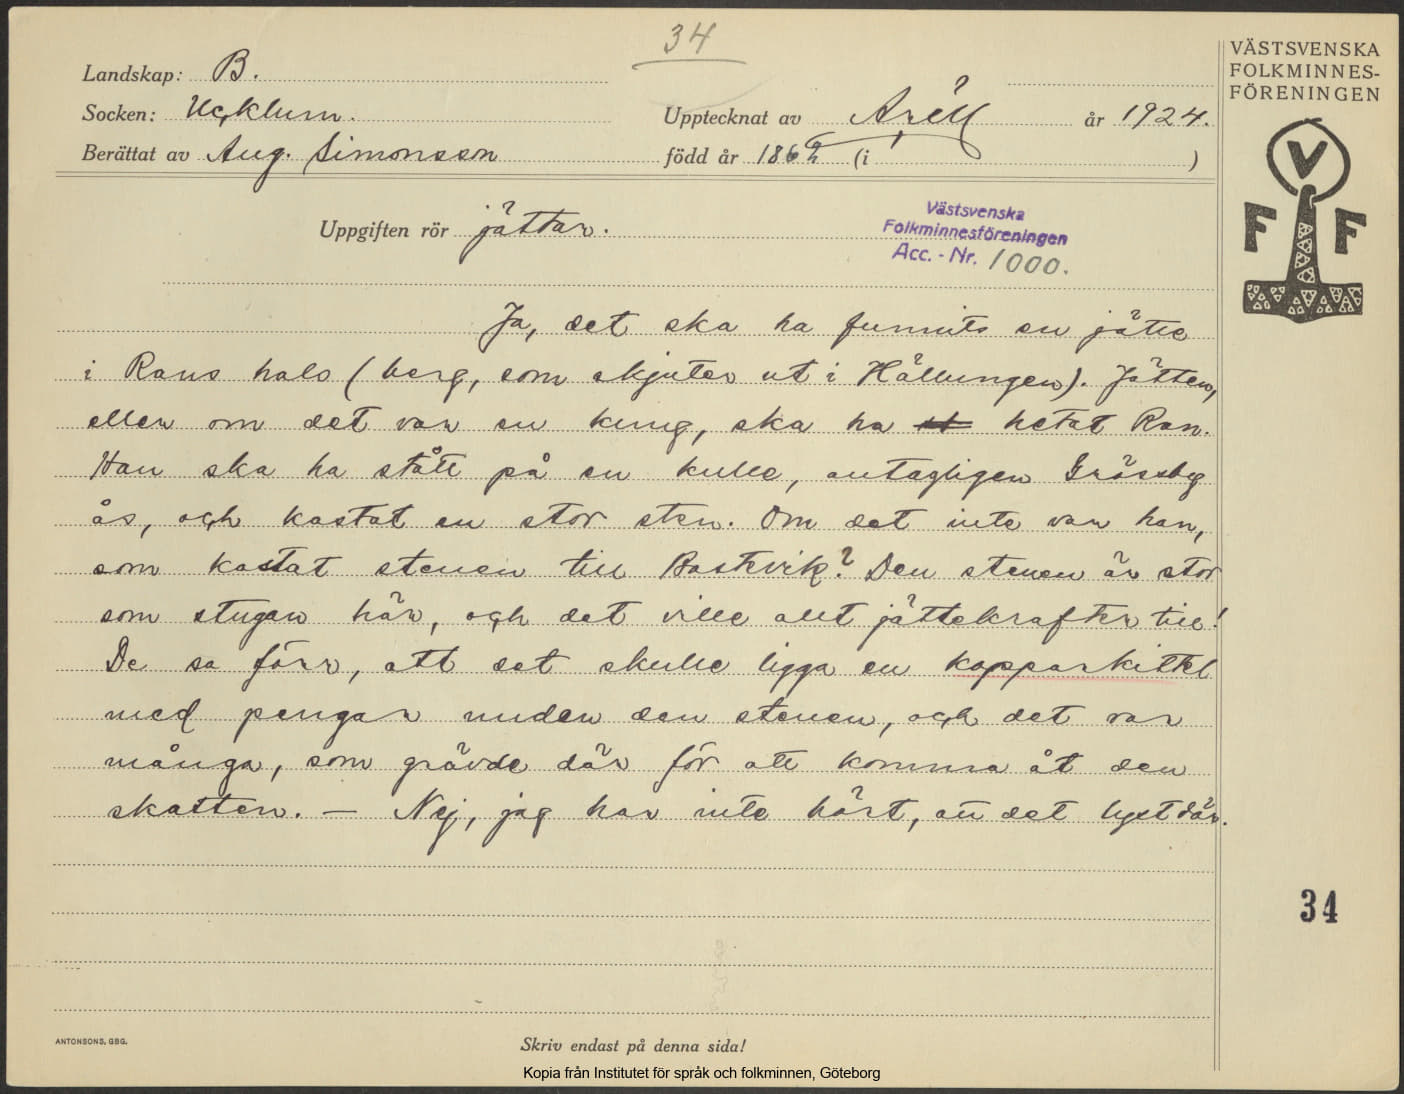 34
VÄSTSVENSKA
FOLKMINNES-
FÖRENINGEN
Landskap: B.
Socken: Ucklum.
Upptecknat av Aréll år 1924.
Berättat av Aug. Simonsson född år 1862 (i )
V
F F
Uppgiften rör jättar.
Västsvenska
Folkminnesföreningen
Acc.-Nr. 1000.
Ja, det ska ha funnits en jätte
i Rans hals (berg, som skjuter ut i Hällungen). Jätten,
eller om det var en kung, ska ha hetat Ran.
Han ska ha stått på en kulle, antagligen Grössby
ås, och kastat en stor sten. Om det inte var han,
som kastat stenen till Bastevik? Den stenen är stor
som stugan här, och det ville allt jättekrafter till!
De sa förr, att det skulle ligga en kopparkittel
med pengar unden den stenen, och det var
många, som grävde där för att komma åt den
skatten. – Nej, jag har inte hört, att det lyst där.
34
ANTONSONS, GBG.
Skriv endast på denna sida!
Kopia från Institutet för språk och folkminnen, Göteborg